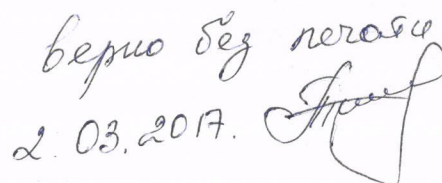 верно без печати
2.03.2017.